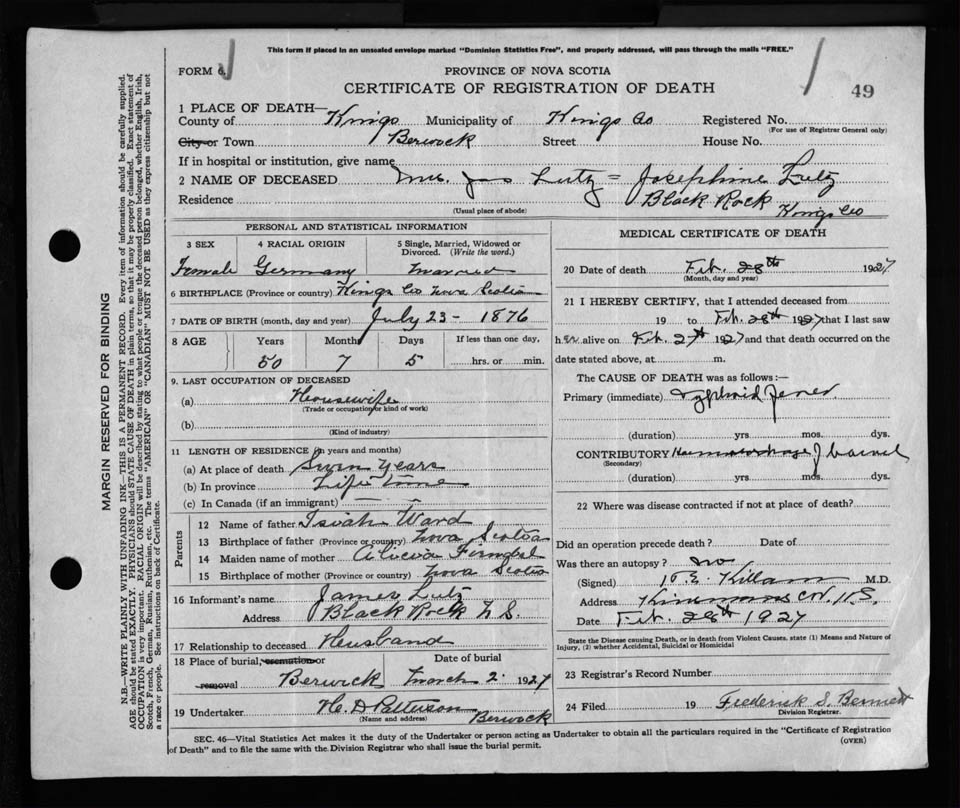 This form if placed in an unsealed envelope marked "Dominion Statistics Free", and properly addressed, will pass through the mails "FREE."
FORM 6.
PROVINCE OF NOVA SCOTIA
CERTIFICATE OF REGISTRATION OF DEATH
49
1 PLACE OF DEATH—
County of Kings Municipality of Kings Co Registered No.
(For use of Registrar General only)
City or Town Berwick Street House No.
If in hospital or institution, give name
2 NAME OF DECEASED Mrs. Jas Lutz = Josephine Lutz
Residence Black Rock Kings Co
(Usual place of abode)
PERSONAL AND STATISTICAL INFORMATION
3 SEX 4 RACIAL ORIGIN 5 Single, Married, Widowed or Divorced. (Write the word.)
Female Germany Married
6 BIRTHPLACE (Province or country) Kings Co Nova Scotia
7 DATE OF BIRTH (month, day and year) July 23 - 1876
8 AGE Years Months Days If less than one day,
50 7 5 hrs. or min.
9. LAST OCCUPATION OF DECEASED
(a) Housewife
(Trade or occupation or kind of work)
(b)
(Kind of industry)
11 LENGTH OF RESIDENCE (in years and months)
(a) At place of death Seven Years
(b) In province Life time
(c) In Canada (if an immigrant)
Parents
12 Name of father Isiah Ward
13 Birthplace of father (Province or country) Nova Scotia
14 Maiden name of mother
15 Birthplace of mother (Province or country) Nova Scotia
16 Informant's name James Lutz
Address Black Rock N.S.
17 Relationship to deceased Husband
18 Place of burial, cremation or removal Date of burial
Berwick March 2. 1927
19 Undertaker H. D Patterson
(Name and address) Berwick
MEDICAL CERTIFICATE OF DEATH
20 Date of death Feb. 28th 1927
(Month, day and year)
21 I HEREBY CERTIFY, that I attended deceased from
19 to Feb. 28th 1927 that I last saw
her alive on Feb. 27th 1927 and that death occurred on the
date stated above, at m.
The CAUSE OF DEATH was as follows:—
Primary (immediate) Typhoid Fever
(duration) yrs. mos. dys.
CONTRIBUTORY Haemorrhage of bowel
(Secondary)
(duration) yrs. mos. dys.
22 Where was disease contracted if not at place of death?
Did an operation precede death? Date of
Was there an autopsy? no
(Signed) Killam M.D.
Address N.S.
Date Feb. 28th 1927
State the Disease causing Death, or in death from Violent Causes, state (1) Means and Nature of Injury, (2) whether Accidental, Suicidal or Homicidal
23 Registrar's Record Number
24 Filed 19 Frederick S. Bennett
Division Registrar.
SEC. 46—Vital Statistics Act makes it the duty of the Undertaker or person acting as Undertaker to obtain all the particulars required in the "Certificate of Registration
of Death" and to file the same with the Division Registrar who shall issue the burial permit.
(OVER)
MARGIN RESERVED FOR BINDING
N.B.—WRITE PLAINLY WITH UNFADING INK—THIS IS A PERMANENT RECORD. Every item of information should be carefully supplied.
AGE should be stated EXACTLY. PHYSICIANS should STATE CAUSE OF DEATH in plain terms, so that it may be properly classified. Exact statement of
OCCUPATION is very important. RACIAL ORIGIN will be described by stating to what people or tongue the deceased person belonged, whether English, Irish,
Scotch, French, German, Russian, Ruthenian, etc. The terms "AMERICAN" or "CANADIAN" MUST NOT BE USED as they express citizenship but not
a race or people. See instructions on back of Certificate.